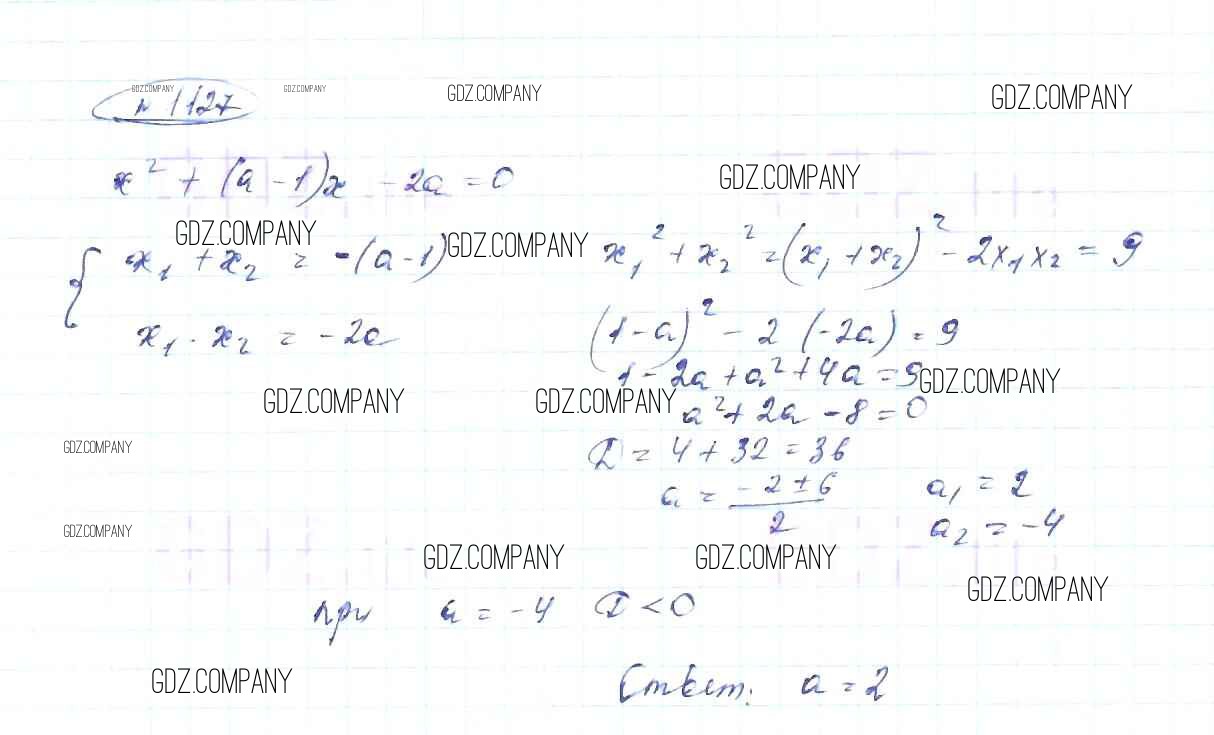 GDZ.COMPANY GDZ.COMPANY GDZ.COMPANY GDZ.COMPANY
№ 1127
x² + (a - 1)x - 2a = 0
GDZ.COMPANY
GDZ.COMPANY GDZ.COMPANY
{ x₁ + x₂ = -(a - 1)
x₁ · x₂ = -2a
x₁² + x₂² = (x₁ + x₂)² - 2x₁x₂ = 9
(1 - a)² - 2 (-2a) = 9
1 - 2a + a² + 4a = 9
GDZ.COMPANY
GDZ.COMPANY GDZ.COMPANY
a² + 2a - 8 = 0
GDZ.COMPANY
D = 4 + 32 = 36
a = (-2 ± 6)/2
a₁ = 2
a₂ = -4
GDZ.COMPANY
GDZ.COMPANY GDZ.COMPANY
GDZ.COMPANY
при a = -4 D < 0
GDZ.COMPANY
Ответ: a = 2